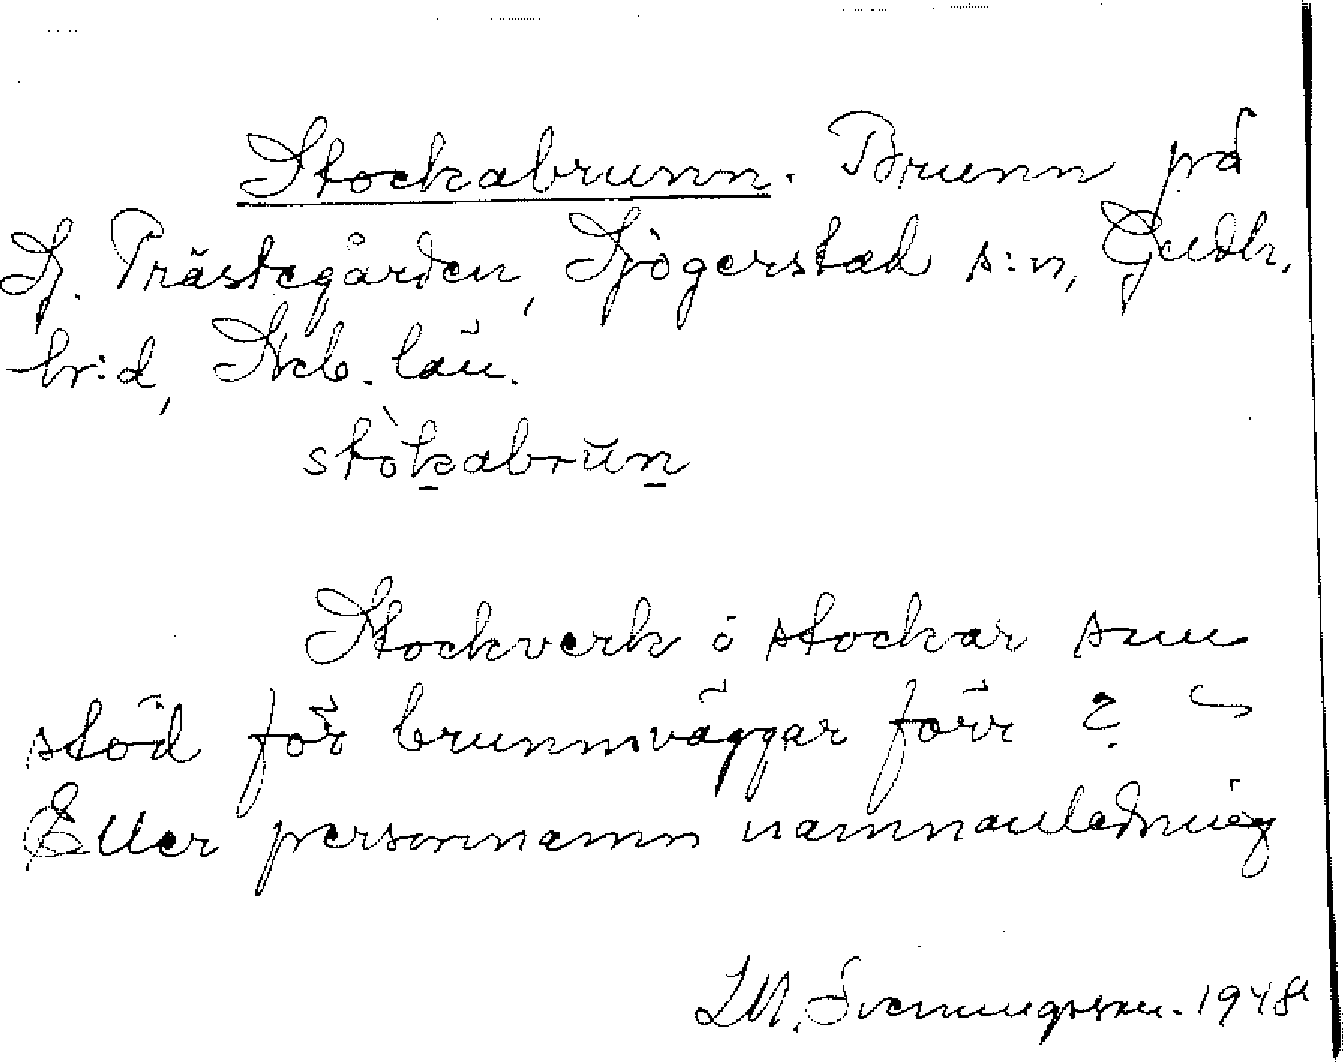 Stockabrunn. Brunn på
Sj. Prästegården, Sjögerstad s:n, Gudh.
hr:d, Skb. län.
stòkabrun
Stockverk ö stockar som
stöd för brunnsväggar förr?
Eller personnamn namnanledning
LM. Svenungsson. 1948